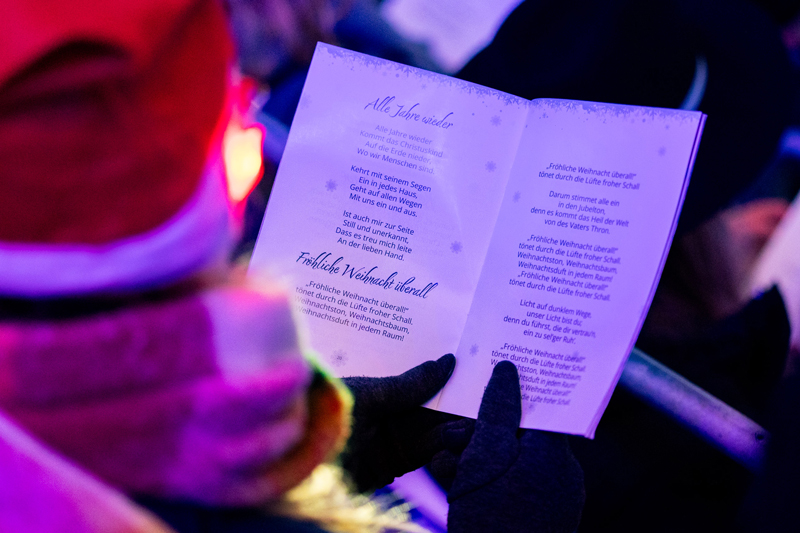 Alle Jahre wieder
Alle Jahre wieder
Kommt das Christuskind
Auf die Erde nieder,
Wo wir Menschen sind.
Kehrt mit seinem Segen
Ein in jedes Haus,
Geht auf allen Wegen
Mit uns ein und aus.
Ist auch mir zur Seite
Still und unerkannt,
Dass es treu mich leite
An der lieben Hand.
Fröhliche Weihnacht überall
„Fröhliche Weihnacht überall!“
tönet durch die Lüfte froher Schall,
Weihnachtston, Weihnachtsbaum,
Weihnachtsduft in jedem Raum!
„Fröhliche Weihnacht überall!“
tönet durch die Lüfte froher Schall
Darum stimmet alle ein
in den Jubelton,
denn es kommt das Heil der Welt
von des Vaters Thron.
„Fröhliche Weihnacht überall!“
tönet durch die Lüfte froher Schall.
Weihnachtston, Weihnachtsbaum,
Weihnachtsduft in jedem Raum!
„Fröhliche Weihnacht überall!“
tönet durch die Lüfte froher Schall.
Licht auf dunklem Wege,
unser Licht bist du;
denn du führst, die dir vertrau'n,
ein zu sel'ger Ruh'.
„Fröhliche Weihnacht überall!“
tönet durch die Lüfte froher Schall.
Weihnachtston, Weihnachtsbaum,
Weihnachtsduft in jedem Raum!
Fröhliche Weihnacht überall!“
durch die Lüfte froher Schall.